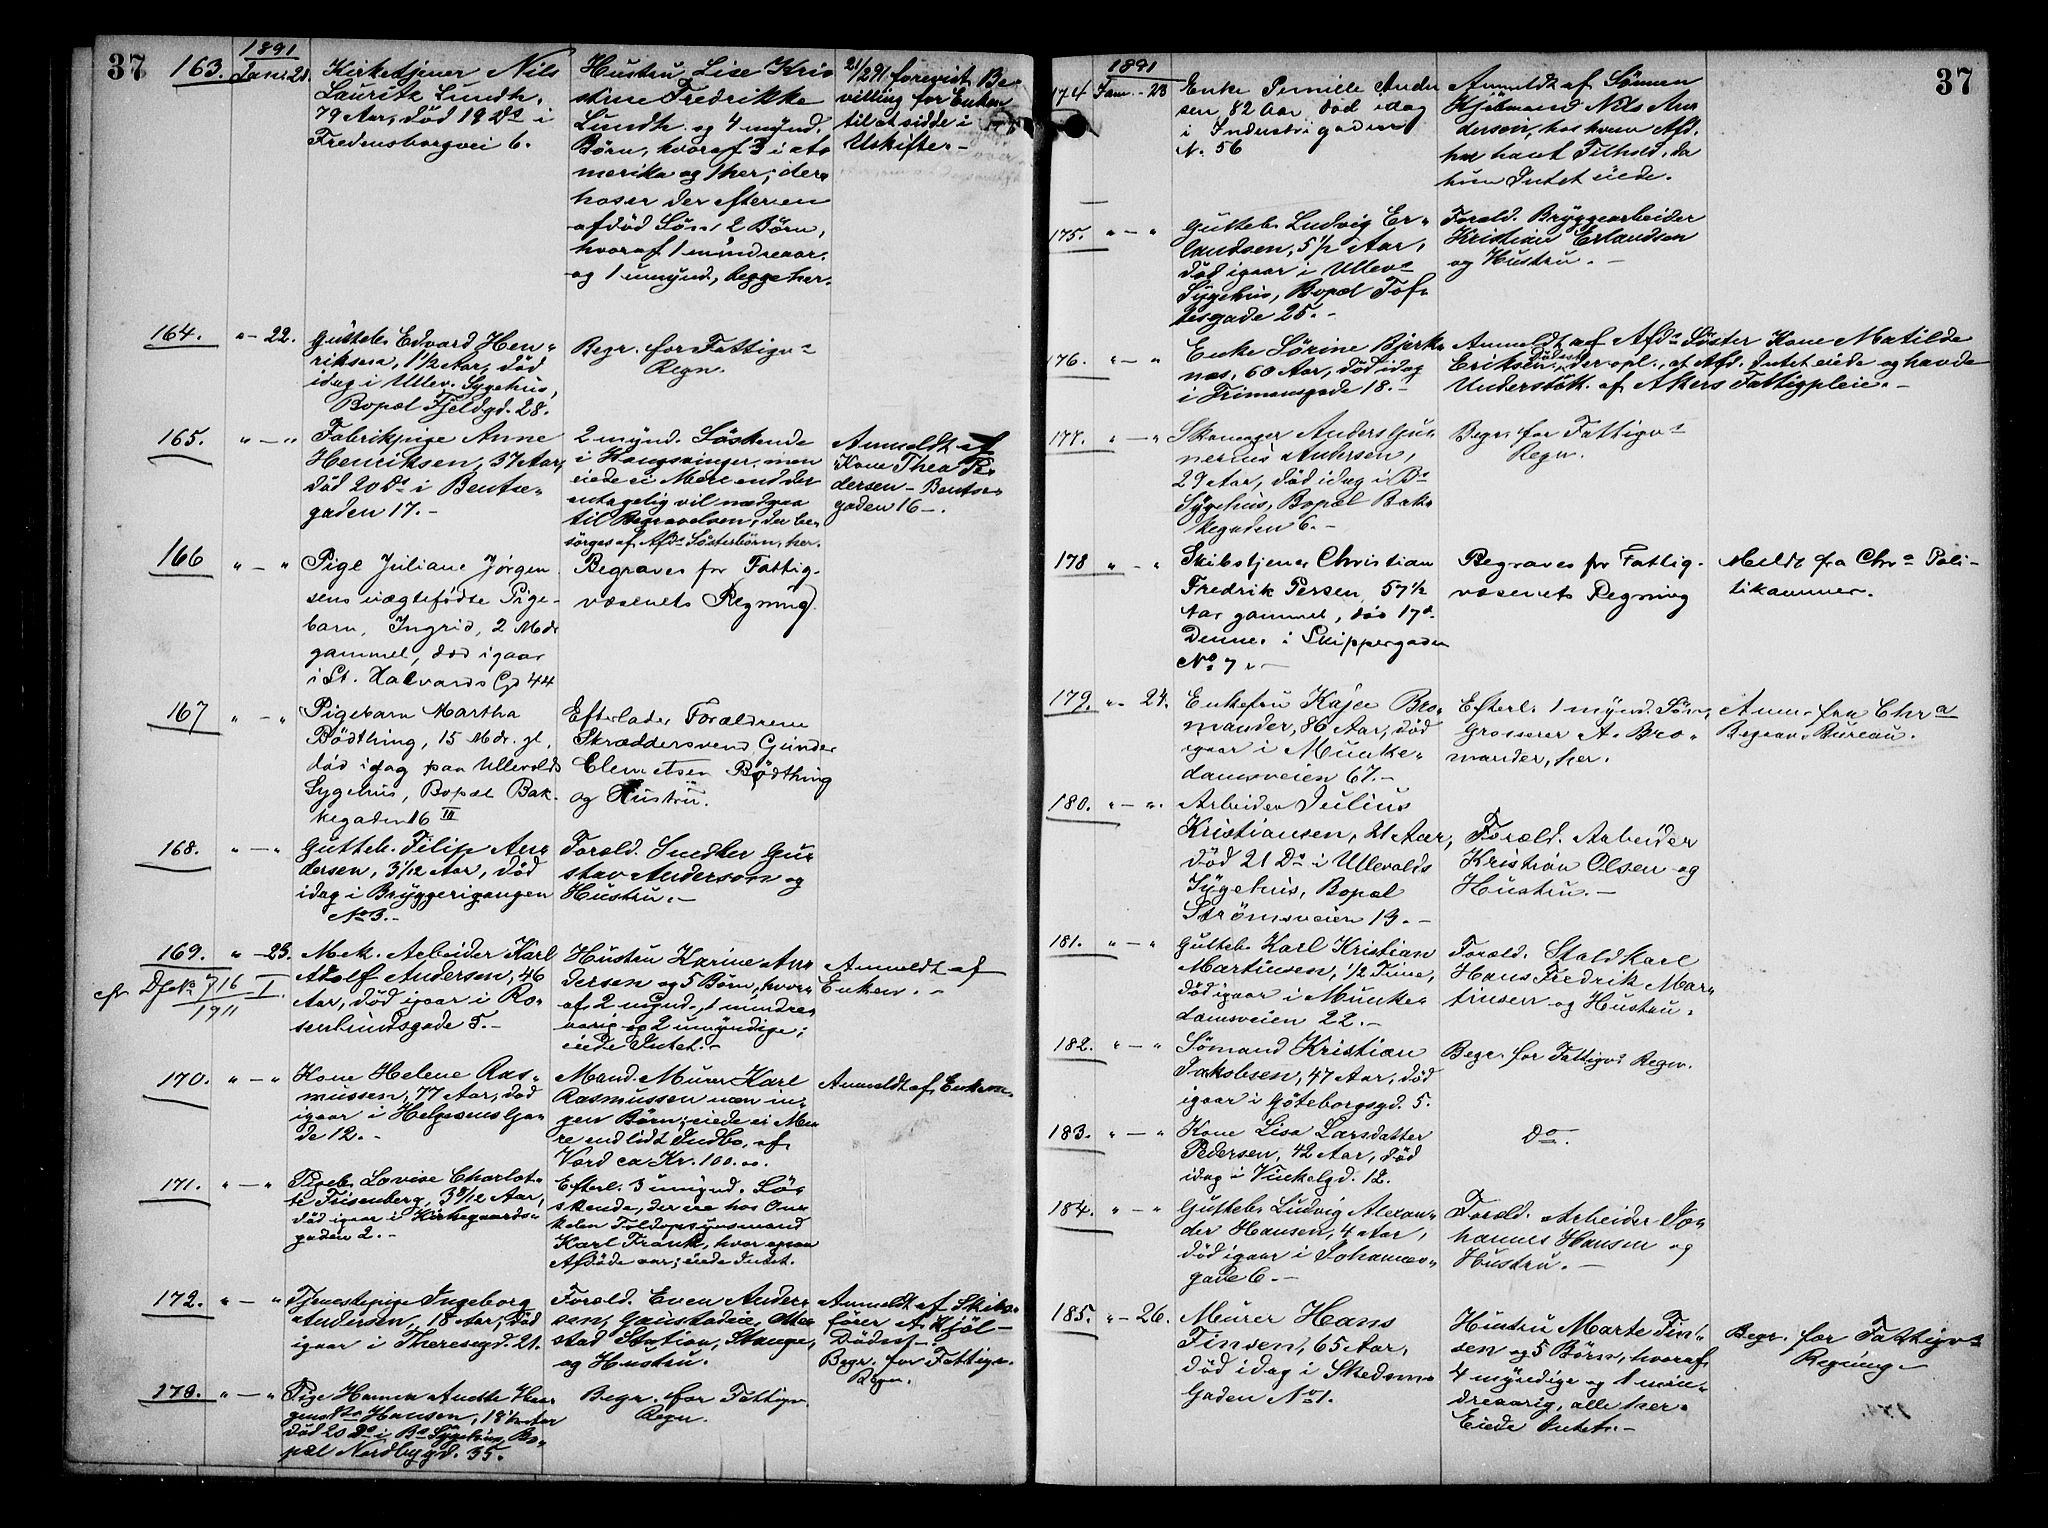 37
1891
163. Jan. 21.
Kirketjener Nils
Lauritz Lundh,
79 Aar, død 19 Ds i
Fredensborgvei 6.
Hustru Lise Kri-
stine Fredrikke
Lundh og 4 mynd.
Børn, hvoraf 3 i A-
merika og 1 her; des-
hoser der efter en
afdød Søn 2 Børn,
hvoraf 1 mindreaar.
og 1 umynd., begge her.
21/2 91 forevist Be-
villing for Enken
til at sidde i
Uskifte.-
164. " - 22.
Gutteb. Edvard Hen-
riksen, 1 1/2 Aar, død
idag i Ullev. Sygehus,
Bopæl Fjeldgd. 28.
Begr. for Fattigv-
Regn.
165. " - "
Fabrikpige Anne
Henriksen, 37 Aar,
død 20 Ds i Bentse-
gaden 17.-
2 mynd. Søskende
i Kongsvinger, men
eiede ei Mere end der
antagelig vil medgaa
til Begravelsen, der be-
sørges af Afds Søsterbørn, her.
Anmeldt af
Kone Thea Pe-
dersen - Bentse-
gaden 16 -.
166 " - "
Pige Juliane Jørgen
sens uægtefødte Pige-
barn, Ingrid, 2 Mdr
gammel, død igaar
i St. Halvards Gd 44
Begraves for Fattig-
væsenets Regning.
167 " - "
Pigebarn Martha
Bödthing, 15 Mdr. gl,
død idag paa Ullevolds
Sygehus, Bopæl Bak-
kegaden 16 III
Efterlader Forældrene
Skræddersvend Gunder
Clemetsen Bödthing
og Hustru.
168. " - "
Gutteb. Filip An-
dersen, 3 1/12 Aar, død
idag i Bryggerigangen
No 3.-
Foræld. Snedker Gu-
stav Anderson og
Hustru.-
169. " - 23.
cfr Dfo No 716 I
1911
Mek. Arbeider Karl
Adolf Andersen, 46
Aar, død igaar i Ro-
senlundsgade 5.-
Hustru Karine An-
dersen og 5 Børn, hvor-
af 2 mynd., 1 mindre-
aarig og 2 umyndige;
eiede Intet.-
Anmeldt af
Enken.-
170. " - "
Kone Helene Ras-
mussen, 77 Aar, død
igaar i Helgesens Ga-
de 12.-
Mand. Murer Karl
Rasmussen men in-
gen Børn; eiede ei Me-
re end lidt Indbo, af
Værd ca Kr. 100.00.
Anmeldt af Enkem.
171. " - "
Pigeb. Lovise Charlot-
te Frisenberg, 3 8/12 Aar,
død igaar i Kirkegaards-
gaden 2.-
Efterl. 3 umynd. Sø-
skende, der ere hos On-
kelen Toldopsynsmand
Karl Frank, hvor ogsaa
Afdøde var; eiede Intet.
172. " - "
Tjenestepige Ingeborg
Andersen, 18 Aar, død
igaar i Theresegd. 21.
Foræld. Even Ander-
sen, Otte-
stad Station, Stange,
og Hustru.
Anmeldt af Skibs-
fører A. Kjøl-
Dødsst-.
Begr. for Fattigv.
Regn.
173. " - "
Pige Hanna
Hansen, 18 Aar
død 20 Ds i Bs Sygehus, Bo-
pæl Nordbygd. 35.
Begr. for Fattigv.
Regn.
37
1891
174 Jan. - 23
Enke Pernille Ander
sen, 82 Aar død idag
i Industrigaden
N. 56
Anmeldt af Sønnen
Kjøbmand Nils An-
dersen, hos hvem Afd.
har havt Tilhold, da
hun Intet eiede.
175. " - "
Gutteb. Ludvig Er-
landsen, 5 1/2 Aar,
død igaar i Ullevs
Sygehus, Bopæl Tof-
tesgade 25.-
Foræld. Bryggearbeider
Kristian Erlandsen
og Hustru.-
176. " - "
Enke Sørine Bjerk-
næs, 60 Aar, død idag
i Frimansgade 18.-
Anmeldt af Afds Søster Kone Matilde
Eriksen, Dødsst., der opl., at Afd. Intet eiede og havde
Understøtt. af Akers Fattigpleie.-
177. " - "
Skomager Anders Gun-
nerius Andersen,
29 Aar, død idag i Bs
Sygehus, Bopæl Bak-
kegaden 6.-
Begr. for Fattigvs
Regn.
178 " - "
Skibstjener Christian
Fredrik Persen, 57 1/2
Aar gammel, død 17d
Dennes i Skippergaden
No 7.-
Begraves for Fattig-
væsenets Regning
Meldt fra Chra Poli-
tikammer.
179. " - 24.
Enkefru Kaja Bro-
mander, 86 Aar, død
igaar i Munke-
damsveien 67.-
Efterl. 1 mynd. Søn,
Grosserer A. Bro-
mander, her.
Anm. fra Chra
Begrav. Bureau.
180. " - "
Arbeider Julius
Kristiansen, 21 Aar,
død 21 Ds i Ullevolds
Sygehus, Bopæl
Strømsveien 13.-
Foræld. Arbeider
Kristian Olsen og
Hustru.-
181. " - "
Gutteb. Karl Kristian
Martinsen, 1/2 Time,
død igaar i Munke-
damsveien 22.-
Foræld. Staldkarl
Hans Fredrik Mar-
tinsen og Hustru.
182. " - "
Sømand Kristian
Jakobsen, 47 Aar, død
igaar i Göteborgsgd. 5.
Begr. for Fattigvs Regn.
183. " - "
Kone Lisa Larsdatter
Pedersen, 42 Aar, død
idag i Vinkelgd. 12.
Do.
184. " - "
Gutteb. Ludvig Alexan-
der Hansen, 4 Aar,
død igaar i Johannes-
gade 6.-
Foræld. Arbeider Jo-
hannes Hansen og
Hustru.-
185. " - 26.
Murer Hans
Finsen, 65 Aar,
død idag i Skedsmo
Gaden No 1.
Hustru Marte Fin-
sen og 5 Børn, hvoraf
4 myndige og 1 min-
dreaarig, alle her.
Eiede Intet.-
Begr. for Fattigvs
Regning-